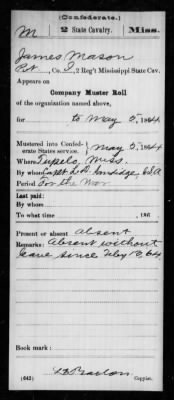 (Confederate.)
M 2 State Cavalry. Miss.
James Mason
Pvt, Co. , 2 Reg't Mississippi State Cav.
Appears on
Company Muster Roll
of the organization named above,
for to May 5, 1864
Mustered into Confed-
erate States service. May 5, 1864
Where Tupelo, Miss.
By whom Capt L. D. CSA
Period For the War
Last paid:
By whom
To what time , 186
Present or absent absent
Remarks: Absent without
leave since Feby 64
Book mark:
(642) Copyist.